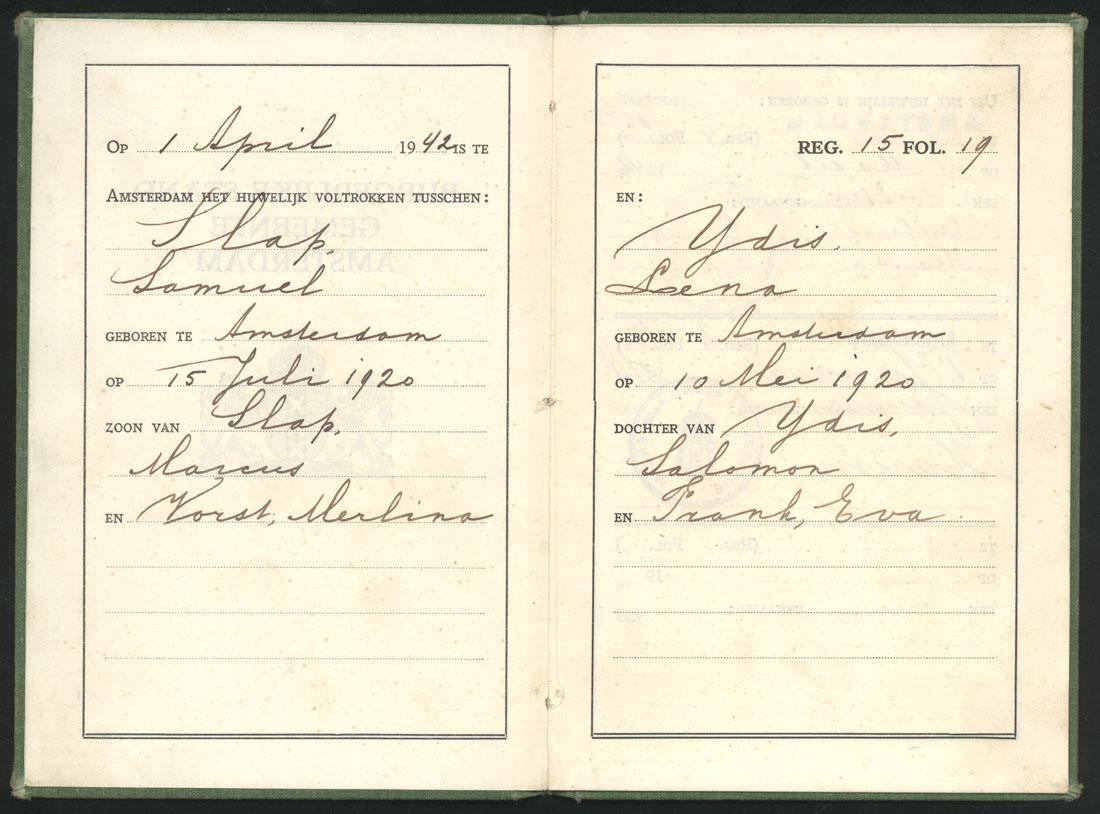 Op 1 April 1942 is te
Amsterdam het huwelijk voltrokken tusschen:
Slap,
Samuel
geboren te Amsterdam
op 15 Juli 1920
zoon van Slap,
Marcus
en Vorst, Merlina
REG. 15 FOL. 19
en:
Ydis,
Lena
geboren te Amsterdam
op 10 Mei 1920
dochter van Ydis,
Salomon
en Frank, Eva